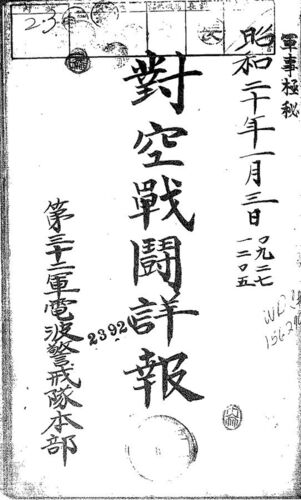 軍事極秘
昭和二十年一月三日
〇九二七
一二〇五
對空戰鬪詳報
2392
第三十二軍電波警戒隊本部
23